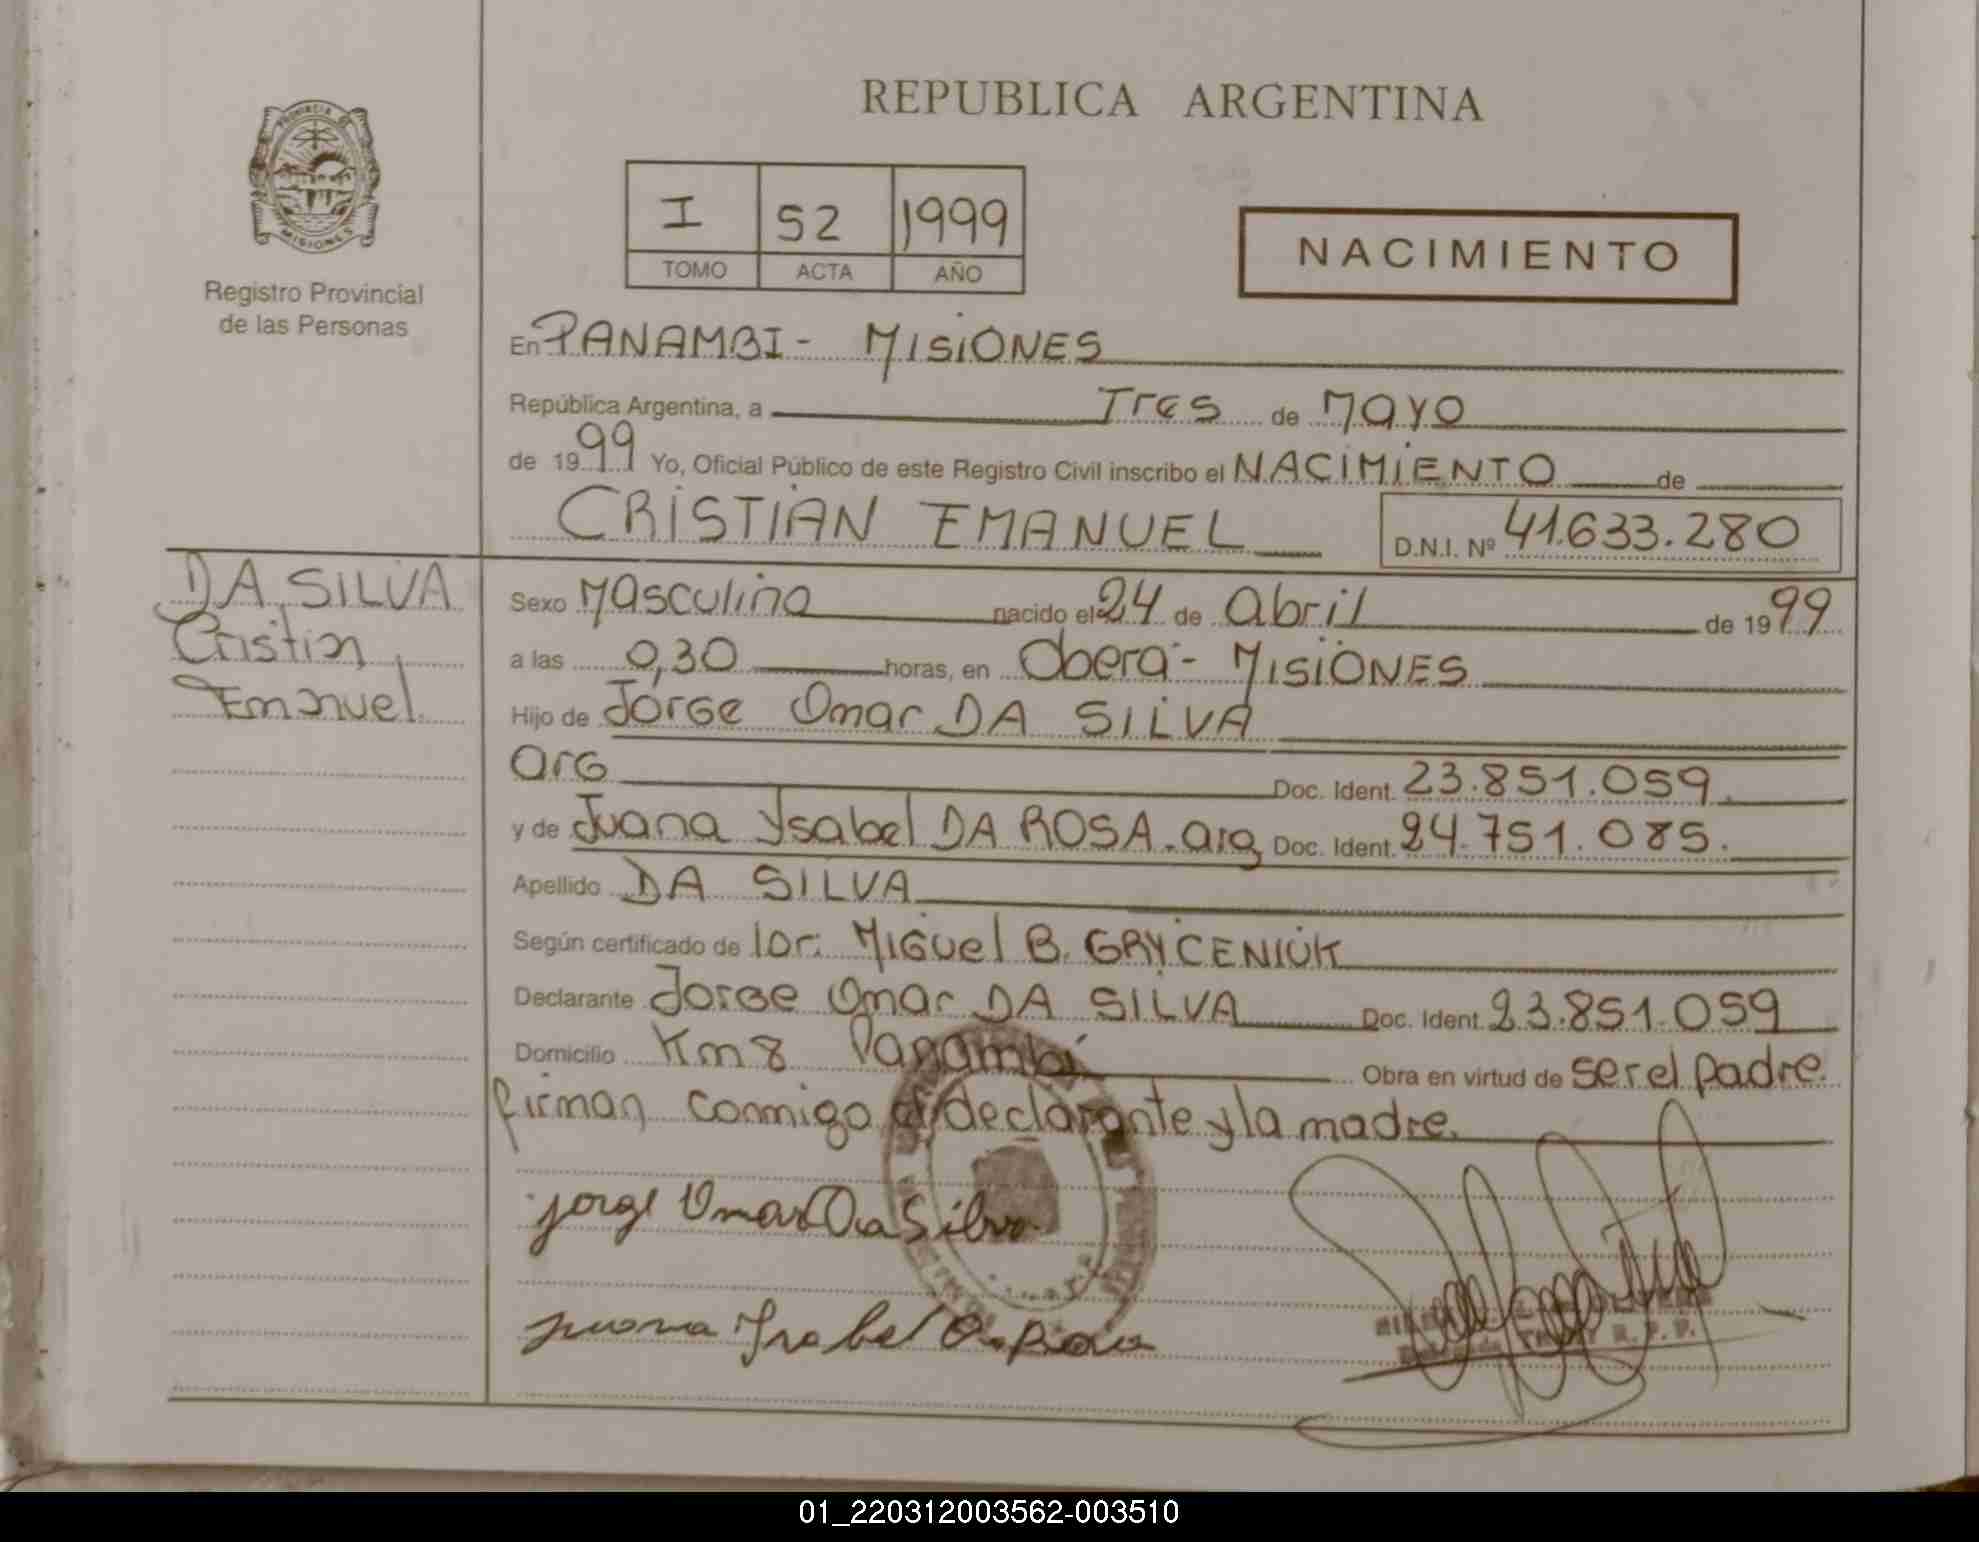 REPUBLICA ARGENTINA
PROVINCIA DE
MISIONES
Registro Provincial
de las Personas
I 52 1999
TOMO ACTA AÑO
NACIMIENTO
En PANAMBI - MISIONES
República Argentina, a Tres de Mayo
de 1999 Yo, Oficial Público de este Registro Civil inscribo el NACIMIENTO de
CRISTIAN EMANUEL D.N.I. Nº 41.633.280
DA SILVA
Cristian
Emanuel
Sexo Masculino nacido el 24 de Abril de 1999
a las 0,30 horas, en Oberá - MISIONES
Hijo de Jorge Omar DA SILVA
arg Doc. Ident. 23.851.059.
y de Juana Ysabel DA ROSA. arg Doc. Ident. 24.751.085.
Apellido DA SILVA
Según certificado de Miguel B. GRYCENIUK
Declarante Jorge Omar DA SILVA Doc. Ident. 23.851.059
Domicilio Km 8 Panambí Obra en virtud de ser el padre.
firman conmigo el declarante y la madre.
Jorge Omar Da Silva
Juana Isabel Da Rosa
R.P.P.
01_220312003562-003510